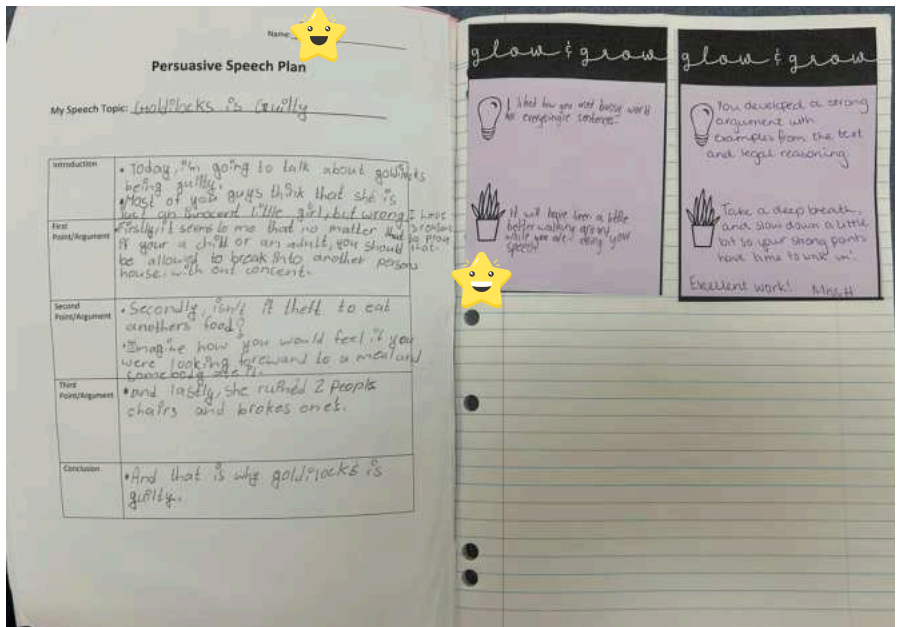 Name:
Persuasive Speech Plan
My Speech Topic: Goldilocks is Guilty
Introduction
• Today, i'm going to talk about goldilocks
being guilty.
• Most of you guys think that she is
just an innocent little girl, but wrong, I have
3 reasons
to prove
that.
First
Point/Argument
• Firstly, it seems to me that no matter
if your a child or an adult, you should not
be allowed to break into another persons
house, with out concent.
Second
Point/Argument
• Secondly, isn't it theft to eat
anothers food?
• Imagine how you would feel if you
were looking foreward to a meal and
somebody ate it.
Third
Point/Argument
• and lastly, she ruined 2 people
chairs and brokes one's.
Conclusion
• And that is why goldilocks is
guilty.
glow & grow
I liked how you used bossy words
for everysingle sentences.
It will have been a little
better walking around
while you are doing your
speech
glow & grow
You developed a strong
argument with
examples from the text
and legal reasoning.
Take a deep breath,
and slow down a little
bit so your strong points
have time to sink in.
Excellent work! Mrs H